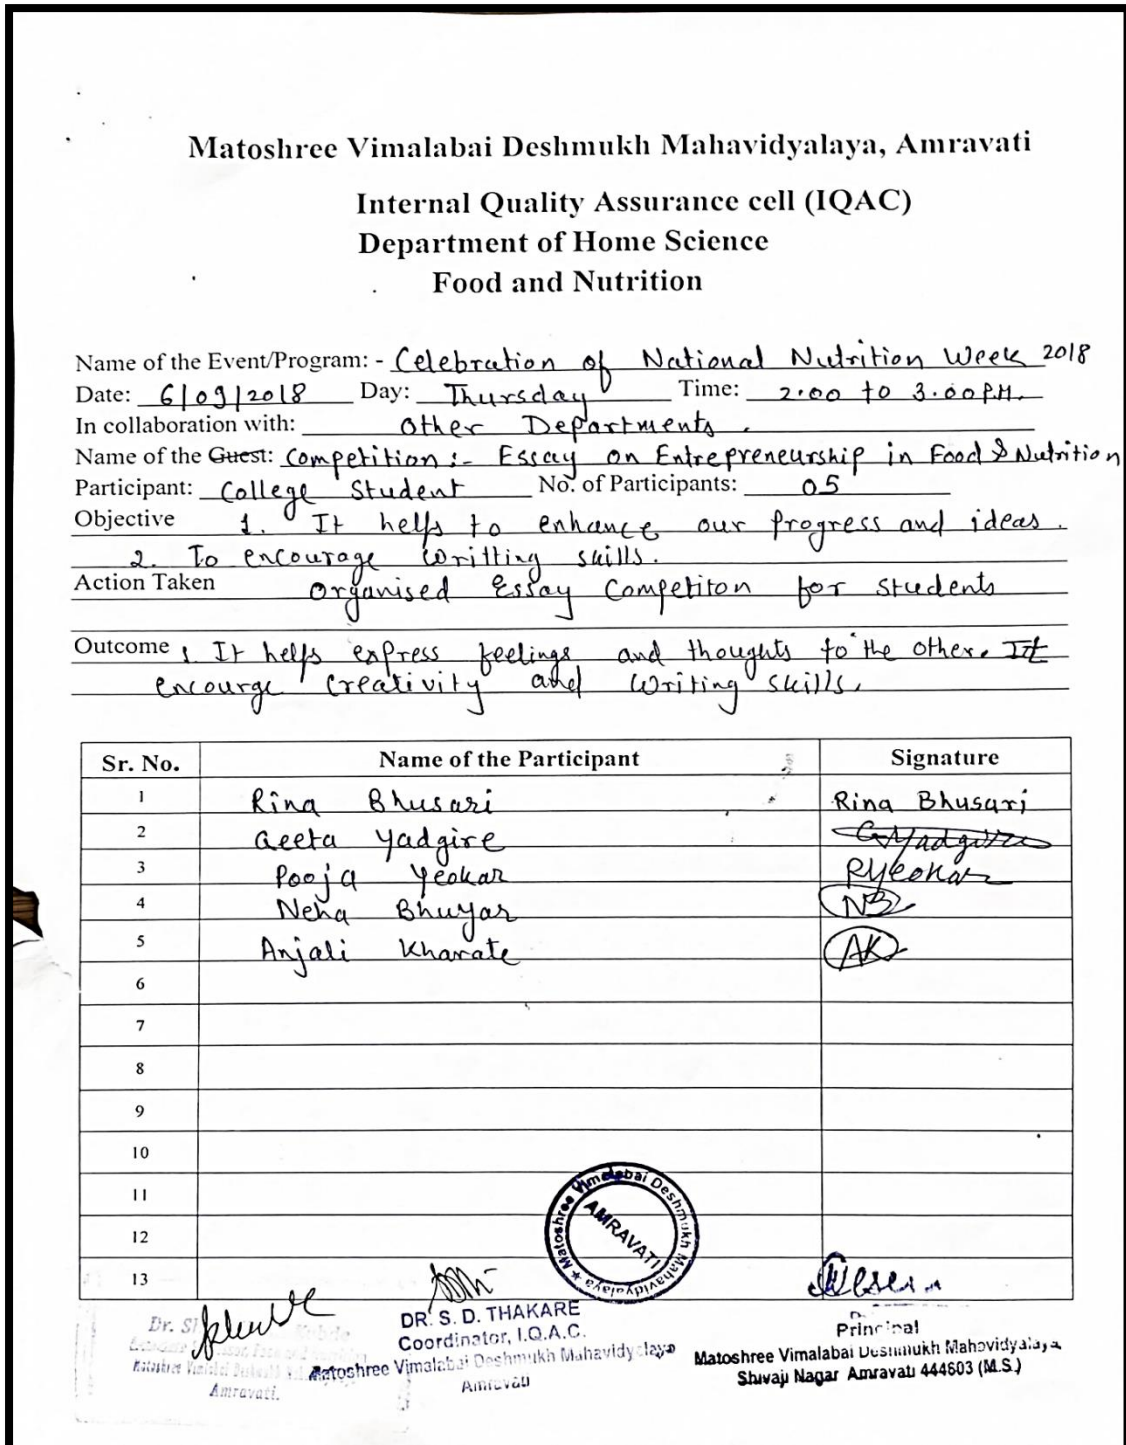 Matoshree Vimalabai Deshmukh Mahavidyalaya, Amravati
Internal Quality Assurance cell (IQAC)
Department of Home Science
Food and Nutrition
Name of the Event/Program: - Celebration of National Nutrition Week 2018
Date: 6/09/2018 Day: Thursday Time: 2.00 to 3.00 P.M.
In collaboration with: Other Departments.
Name of the Guest: Competition:- Essay on Entrepreneurship in Food & Nutrition
Participant: College Student No. of Participants: 05
Objective 1. It helps to enhance our progress and ideas.
2. To encourage writting skills.
Action Taken Organised Essay Competiton for students
Outcome 1. It helps express feelings and thoughts to the other. It
encourge creativity and writing skills.
Sr. No. Name of the Participant Signature
1 Rina Bhusari Rina Bhusari
2 Geeta Yadgire GYadgire
3 Pooja Yeokar PYeokar
4 Neha Bhuyar NB
5 Anjali Kharate AK
6
7
8
9
10
11
12
13
Matoshree Vimalabai Deshmukh Mahavidyalaya
AMRAVATI
Dr.
Amravati.
DR. S. D. THAKARE
Coordinator, I.Q.A.C.
Matoshree Vimalabai Deshmukh Mahavidyalaya
Amravati
Principal
Matoshree Vimalabai Deshmukh Mahavidyalaya
Shivaji Nagar Amravati 444603 (M.S.)